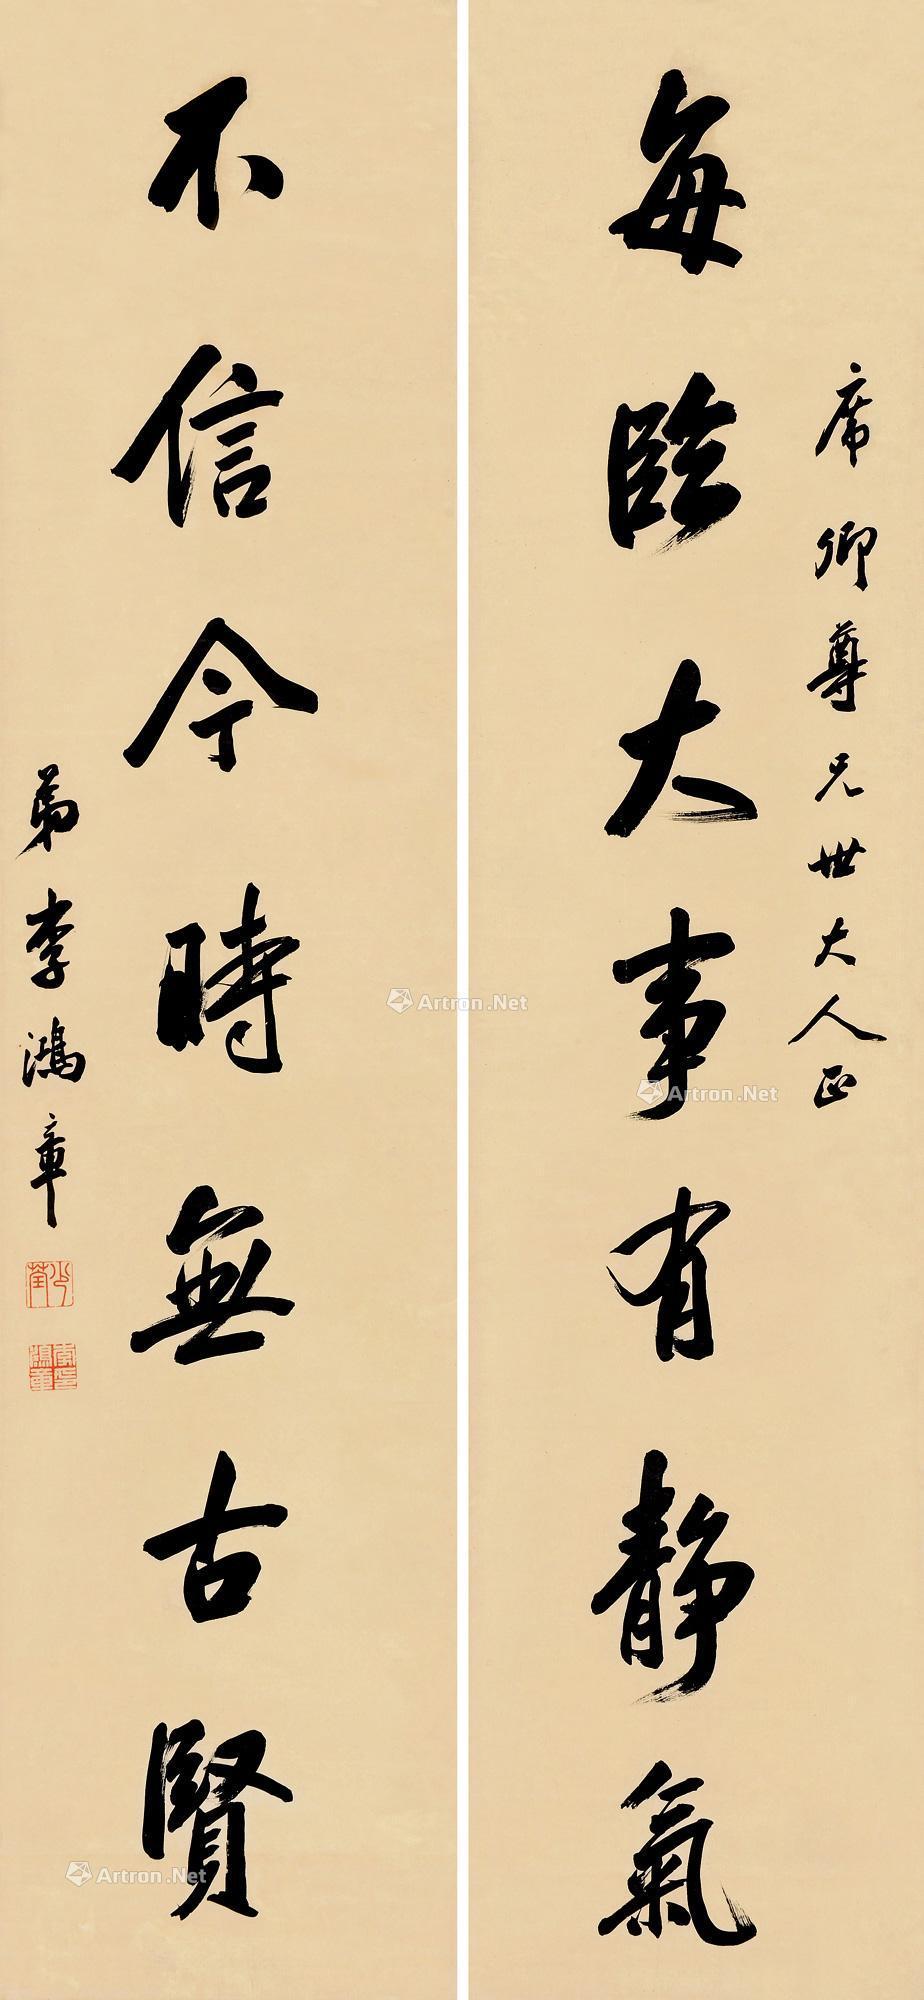 席卿尊兄世大人正
每臨大事有静氣
不信今時無古賢
弟李鴻章
少荃
李鴻章印
Artron.Net
Artron.Net
Artron.Net